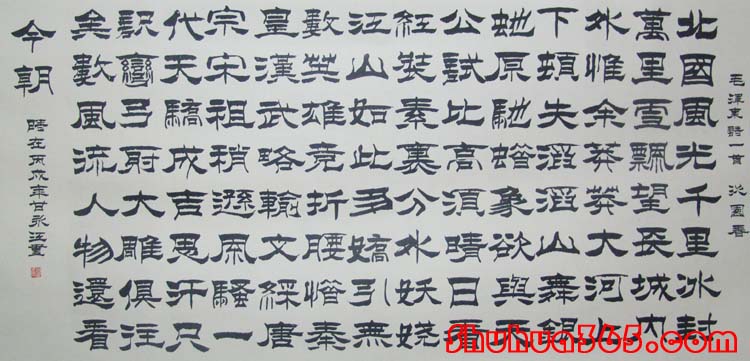 毛澤東詩一首 沁園春
北國風光千里冰封
萬里雪飄望長城內
外惟余莽莽大河上
下頓失滔滔山舞銀
虵原馳蜡象欲與天
公試比高須晴日看
紅裝素裹分外妖嬈
江山如此多嬌引無
數英雄競折腰惜秦
皇漢武略輸文綵唐
宗宋祖稍遜風騷一
代天驕成吉思汗只
識彎弓射大雕俱往
矣數風流人物還看
今朝
時在丙戌年甘永江書
Shuhua365.com